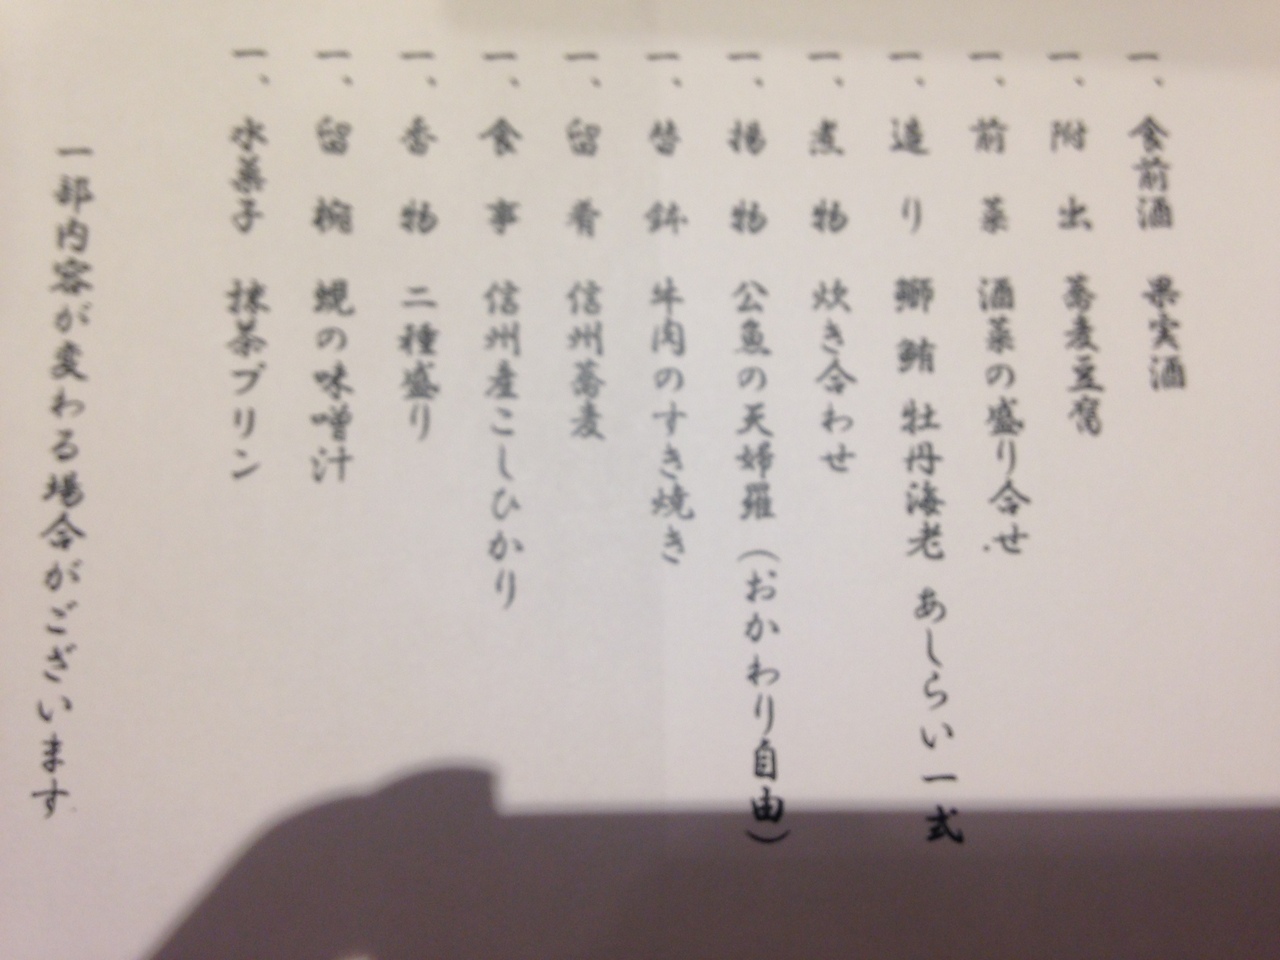 一、食前酒 果実酒
一、附出 蕎麦豆腐
一、前菜 酒菜の盛り合せ
一、造り 鰤 鮪 牡丹海老 あしらい一式
一、煮物 炊き合わせ
一、揚物 公魚の天婦羅（おかわり自由）
一、替鉢 牛肉のすき焼き
一、留肴 信州蕎麦
一、食事 信州産こしひかり
一、香物 二種盛り
一、留椀 蜆の味噌汁
一、水菓子 抹茶プリン
一部内容が変わる場合がございます